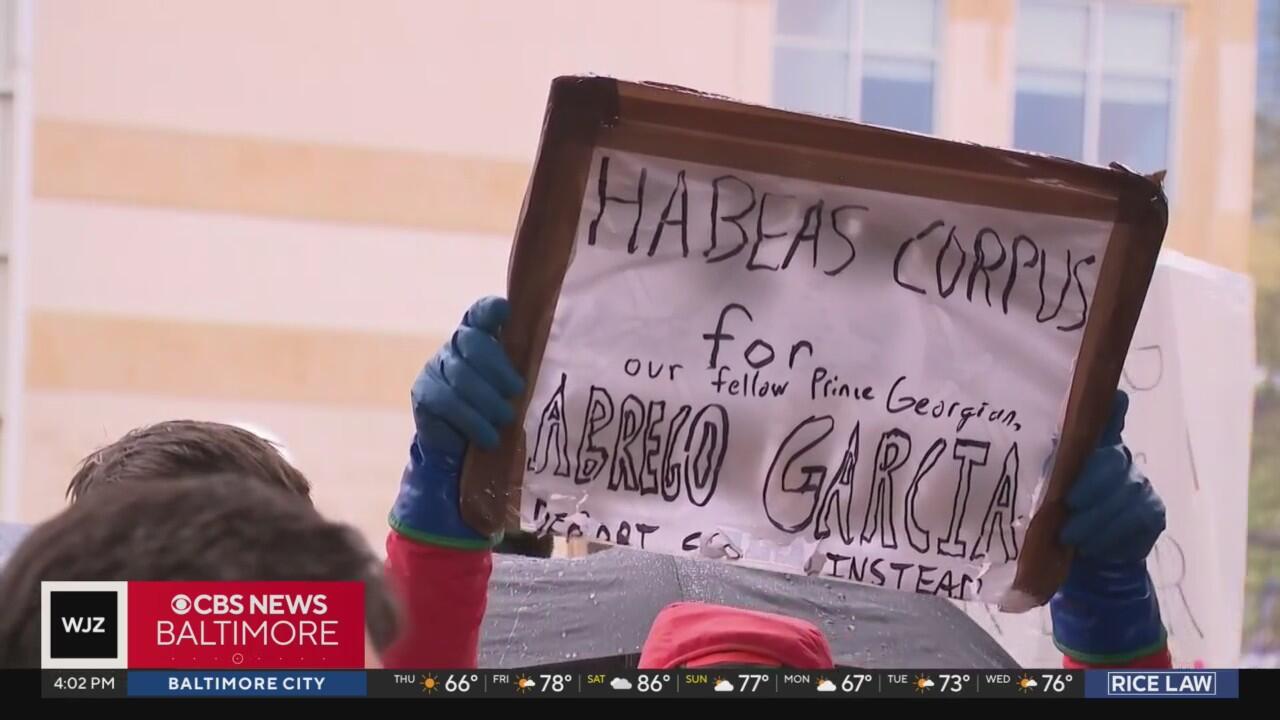 HABEAS CORPUS
for
our fellow Prince Georgian,
ABREGO GARCIA
DEPORT INSTEAD
WJZ
CBS NEWS
BALTIMORE
4:02 PM BALTIMORE CITY THU 66° FRI 78° SAT 86° SUN 77° MON 67° TUE 73° WED 76° RICE LAW